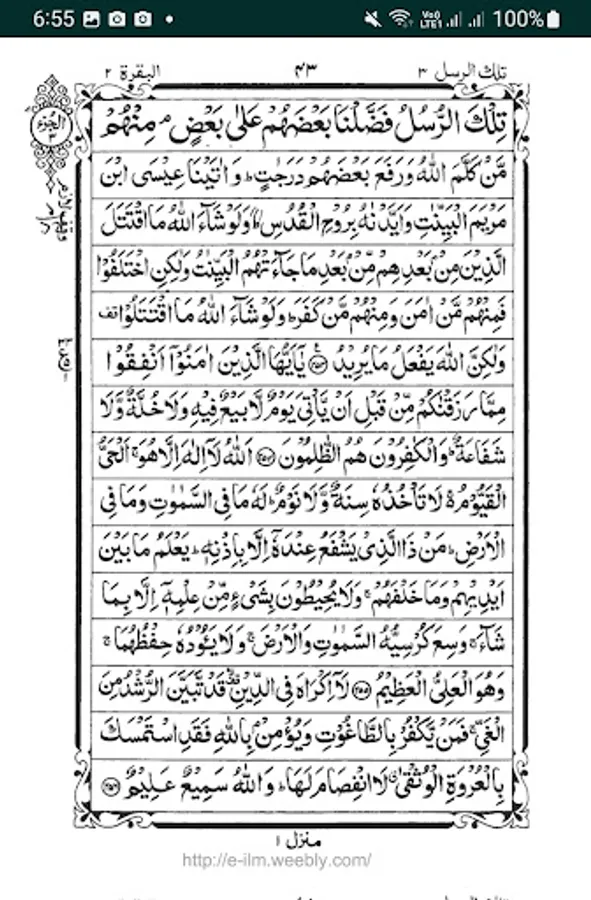 6:55 Vo) LTE1 100%
تلك الرسل ٣ ٤٣ البقرة ٢
الجزء ٣
تِلْكَ الرُّسُلُ فَضَّلْنَا بَعْضَهُمْ عَلٰى بَعْضٍ ۘ مِنْهُمْ
مَّنْ كَلَّمَ اللّٰهُ وَرَفَعَ بَعْضَهُمْ دَرَجٰتٍ ؕ وَاٰتَيْنَا عِيْسَى ابْنَ
مَرْيَمَ الْبَيِّنٰتِ وَاَيَّدْنٰهُ بِرُوْحِ الْقُدُسِ ؕ وَلَوْ شَآءَ اللّٰهُ مَا اقْتَتَلَ
الَّذِيْنَ مِنْۢ بَعْدِهِمْ مِّنْۢ بَعْدِ مَا جَآءَتْهُمُ الْبَيِّنٰتُ وَلٰكِنِ اخْتَلَفُوْا
فَمِنْهُمْ مَّنْ اٰمَنَ وَمِنْهُمْ مَّنْ كَفَرَ ؕ وَلَوْ شَآءَ اللّٰهُ مَا اقْتَتَلُوْا قف
وَلٰكِنَّ اللّٰهَ يَفْعَلُ مَا يُرِيْدُ ﴿٢٥٣﴾ يٰۤاَيُّهَا الَّذِيْنَ اٰمَنُوْۤا اَنْفِقُوْا
مِمَّا رَزَقْنٰكُمْ مِّنْ قَبْلِ اَنْ يَّاْتِيَ يَوْمٌ لَّا بَيْعٌ فِيْهِ وَلَا خُلَّةٌ وَّلَا
شَفَاعَةٌ ؕ وَالْكٰفِرُوْنَ هُمُ الظّٰلِمُوْنَ ﴿٢٥٤﴾ اَللّٰهُ لَاۤ اِلٰهَ اِلَّا هُوَ ۚ اَلْحَيُّ
الْقَيُّوْمُ ۚ لَا تَاْخُذُهٗ سِنَةٌ وَّلَا نَوْمٌ ؕ لَهٗ مَا فِي السَّمٰوٰتِ وَمَا فِي
الْاَرْضِ ؕ مَنْ ذَا الَّذِيْ يَشْفَعُ عِنْدَهٗۤ اِلَّا بِاِذْنِهٖ ؕ يَعْلَمُ مَا بَيْنَ
اَيْدِيْهِمْ وَمَا خَلْفَهُمْ ۚ وَلَا يُحِيْطُوْنَ بِشَيْءٍ مِّنْ عِلْمِهٖۤ اِلَّا بِمَا
شَآءَ ۚ وَسِعَ كُرْسِيُّهُ السَّمٰوٰتِ وَالْاَرْضَ ۚ وَلَا يَـُٔوْدُهٗ حِفْظُهُمَا ۚ
وَهُوَ الْعَلِيُّ الْعَظِيْمُ ﴿٢٥٥﴾ لَاۤ اِكْرَاهَ فِي الدِّيْنِ ۙ قَدْ تَّبَيَّنَ الرُّشْدُ مِنَ
الْغَيِّ ۚ فَمَنْ يَّكْفُرْ بِالطَّاغُوْتِ وَيُؤْمِنْۢ بِاللّٰهِ فَقَدِ اسْتَمْسَكَ
بِالْعُرْوَةِ الْوُثْقٰى ۗ لَا انْفِصَامَ لَهَا ؕ وَاللّٰهُ سَمِيْعٌ عَلِيْمٌ ﴿٢٥٦﴾
منزل ١
http://e-ilm.weebly.com/